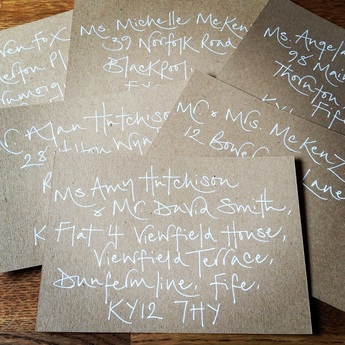 Ms. Michelle McKen
39 Norfolk Road
Blackpool,
Ms. Angela
98 Main
Thornton
Fife
ven Fox
efton Pl
Alan Hutchison
28 Hilton Wyn
Mc & Mrs. McKenz
12 Bowe
Lane
Ms Amy Hutchison
& Mc David Smith,
K Flat 4 Viewfield House,
Viewfield Terrace,
Dunfermline, Fife,
KY12 7HY